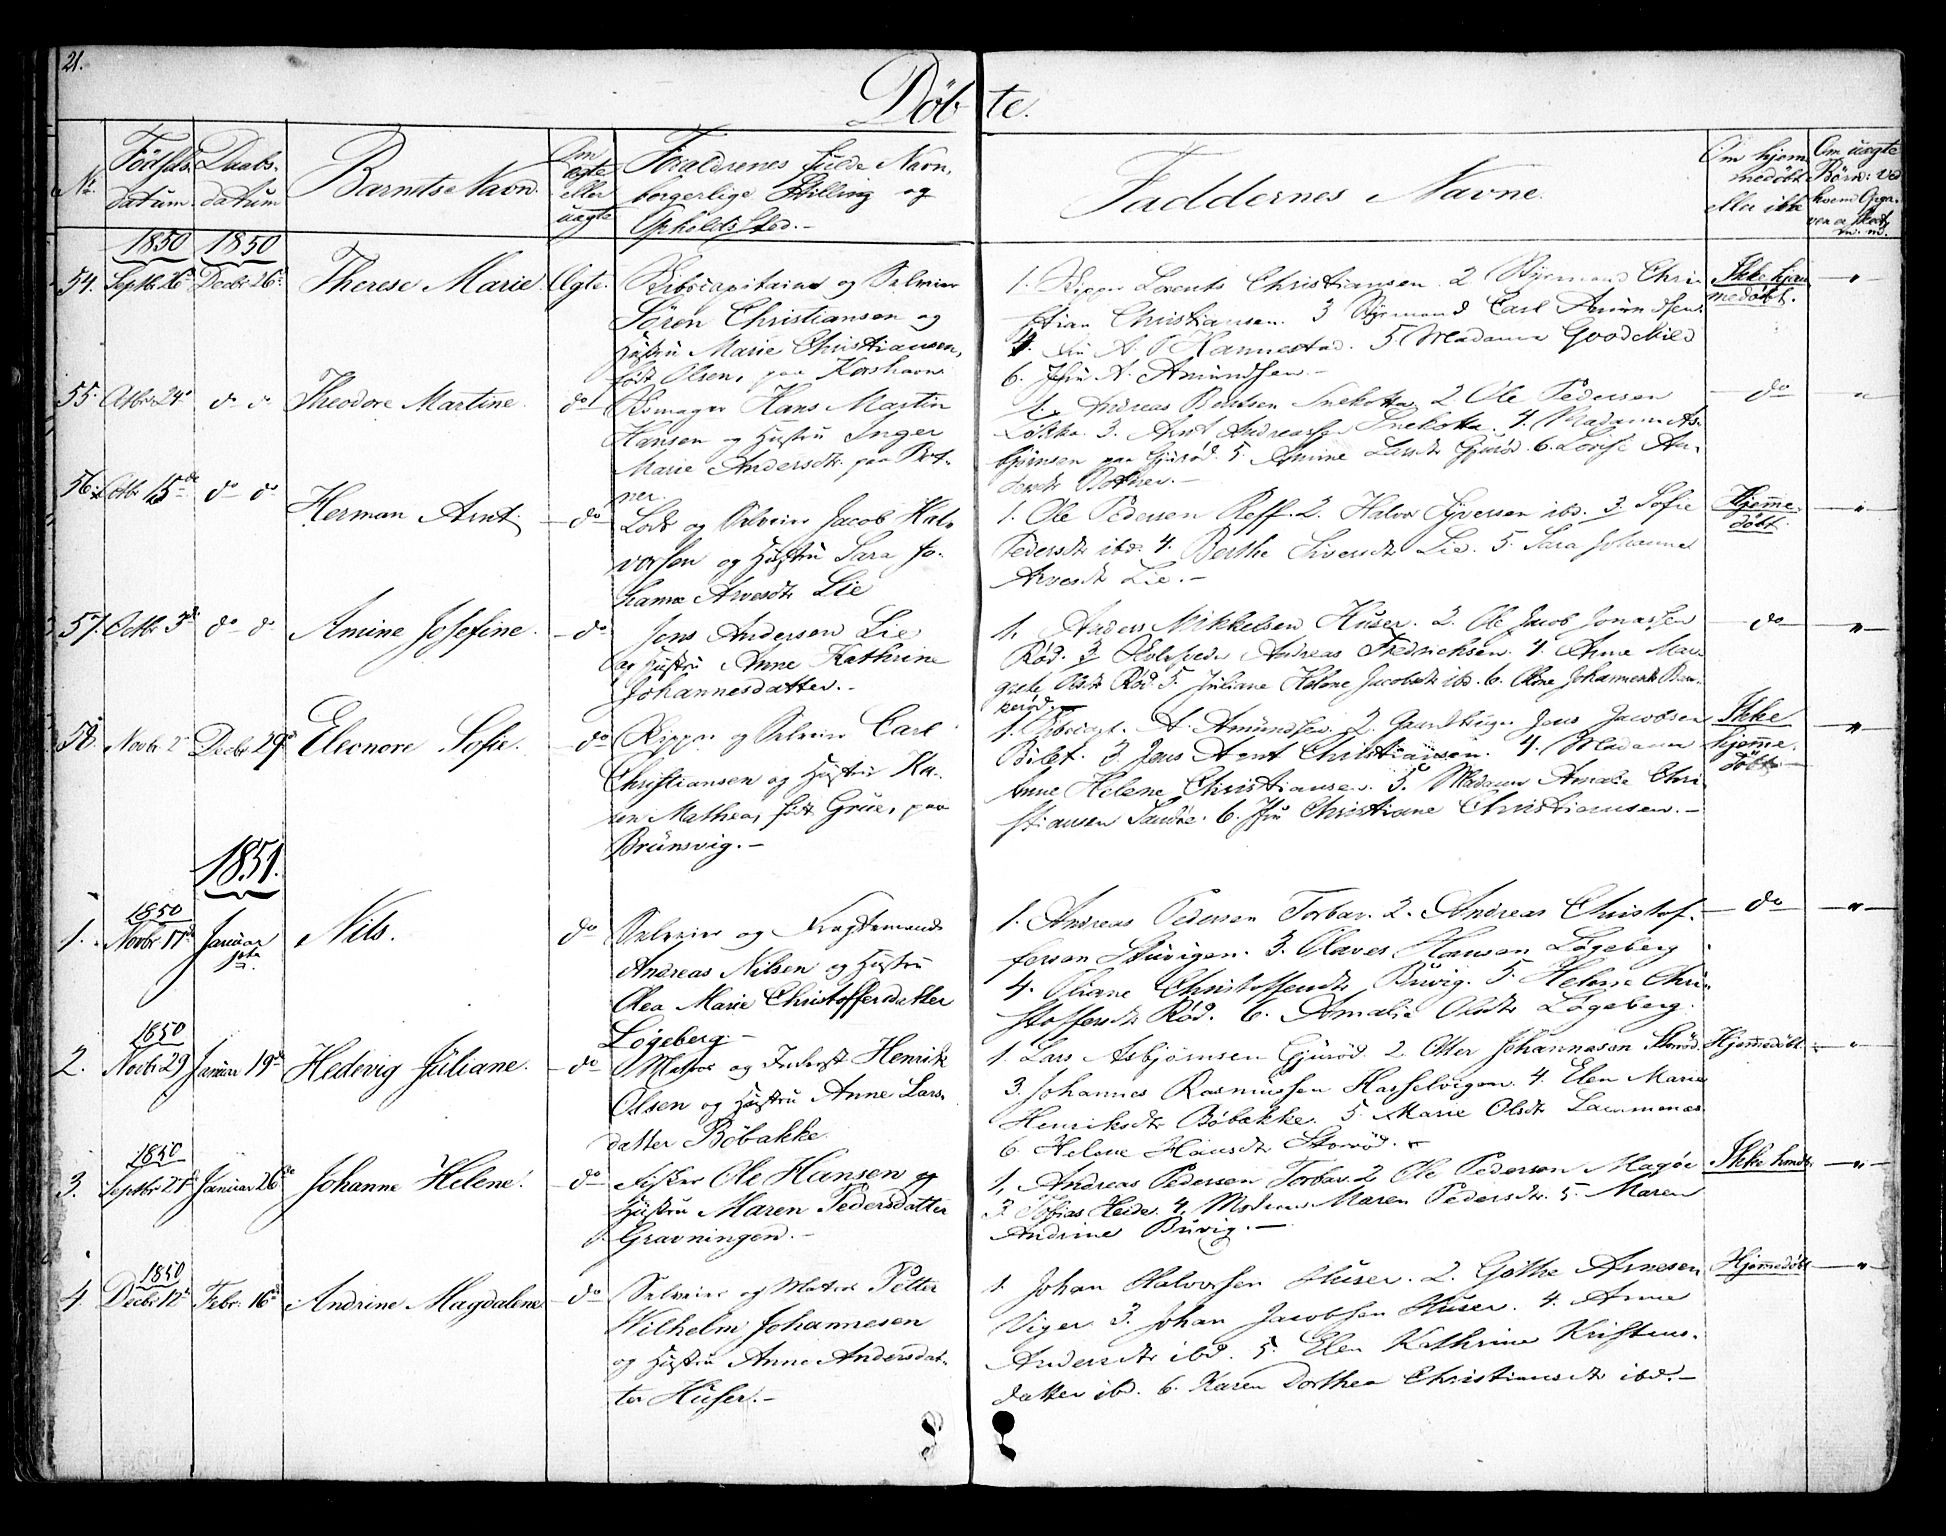 21.
Döbte.
No
Födsels-
datum
Daabs-
datum
Barnets Navn.
Om
ægte
eller
uægte
Forældrenes fulde Navn,
borgerlige Stilling og
Opholds Sted. -
Faddernes Navne.
Om hjem
medöbt
eller ikke
Om uægte
Börn: ved
hvem
1850 1850
54. Septbr 26 Decbr 26 Therese Marie Ægte.
og Selveier
Sören Christiansen og
Hustru Marie Christiansen,
födt Olsen, paa Korshavn
1. Skipper Lorents Christiansen. 2 Styrmand Chri-
stian Christiansen. 3 Styrmand Carl Amundsen.
4. A. Hannestad. 5. Madame Goodchild
6. Jfru A. Amundsen. -
Ikke hjem
medöbt.
55. Octbr 24 do do Theodore Martine. do
Hans Martin
Hansen og Hustru Inger
Marie Andersdtr. paa Bot-
ner.
1. Andreas Berntsen Snekotta 2 Ole Pedersen
Lökka. 3. Arnt Andreassen Snekotta. 4. Madame As-
björnsen paa Gjuröd. 5. Amine Larsdtr Gjuröd. 6. Lovise An-
dersdtr Botner. -
do
56. Octbr 15de do do Herman Arnt. do
Lods og Selveier Jacob Hal-
vorsen og Hustru Sara Jo-
hanne Arvesdtr Lie
1. Ole Pedersen Reff. 2. Halvor Syversen ibd. 3 Sofie
Pedersdtr ibd. 4. Berthe Sivertsdtr Lie. 5. Sara Johanne
Arvesdtr Lie. -
Hjemme-
döbt.
57. Octbr 3de do do Amine Josefine. do
Jens Andersen Lie
og Hustru Anne Kathrine
Johannesdatter. -
1. Anders Mikkelsen Huser. 2. Ole Jacob Jonassen
Röd. 3 Andreas Fredrichsen. 4. Anne Mar-
grete Olsdtr Röd. 5. Juliane Helene Jacobsdtr ibd. 6. Oline Johannesdtr
do
58. Novbr 2 Decbr 29 Eleonore Sofie. do
Skipper og Selveier Carl
Christiansen og Hustru Ka-
ren Mathea, födt Grue, paa
Brunsvig. -
1. A. Amundsen. 2. Jens Jacobsen
Bilet. 3. Jens Arnt Christiansen. 4. Madame
Anne Helene Christiansen. 5. Madame Amalie Chri-
stiansen Sandöe. 6. Jfru Christiane Christiansen. -
Ikke
hjemme-
döbt. -
1851.
1. 1850
Novbr 17de Januar
Nils. do
Selveier og Fragtemand
Andreas Nilsen og Hustru
Olea Marie Christoffersdatter
Lögeberg -
1. Andreas Pedersen Torbar. 2. Andreas Christof-
fersen Stuvigen. 3. Olaves Hansen Lögeberg
4. Oliane Christoffersdtr Buvig. 5. Helene Chri-
stoffersdtr Röd. 6. Amalie Olsdtr Lögeberg.
do
2. 1850
Novbr 29 Januar 19de Hedevig Juliane. do
Matros og Inderst Henrik
Olsen og Hustru Anne Lars-
datter Böbakke
1. Lars Asbjörnsen Gjuröd. 2 Otter Johannesen Storöd.
3. Johannes Rasmussen Hasselvigen. 4. Elen Marie
Henriksdtr Böbakke. 5. Marie Olsdtr Lammenæs
6. Helene Hansdtr Storöd. -
Hjemmedöbt
3. 1850
Septbr 21 Januar 26de Johanne Helene. do
Fisker Ole Hansen og
Hustru Maren Pedersdatter
Gravningen. -
1. Andreas Pedersen Torbar. 2 Ole Pedersen Magöe
3. Tobias Heide. 4. Madame Maren Pedersdtr. 5. Maren
Andrine Buvig. -
Ikke hmdt
4. 1850
Decbr 12 Febr. 16 Andrine Magdalene do
Selveier og Matros Petter
Wilhelm Johannesen
og Hustru Anne Andersdat-
ter Huser. -
1. Johan Halvorsen Huser. 2. Göthe Arnesen
Viger 3. Johan Jacobsen Huser. 4. Anne
Andersdtr ibd. 5. Elen Kathrine Kristens-
datter ibd. 6. Karen Dorthea Christiansdtr ibd. -
Hjemmedöbt